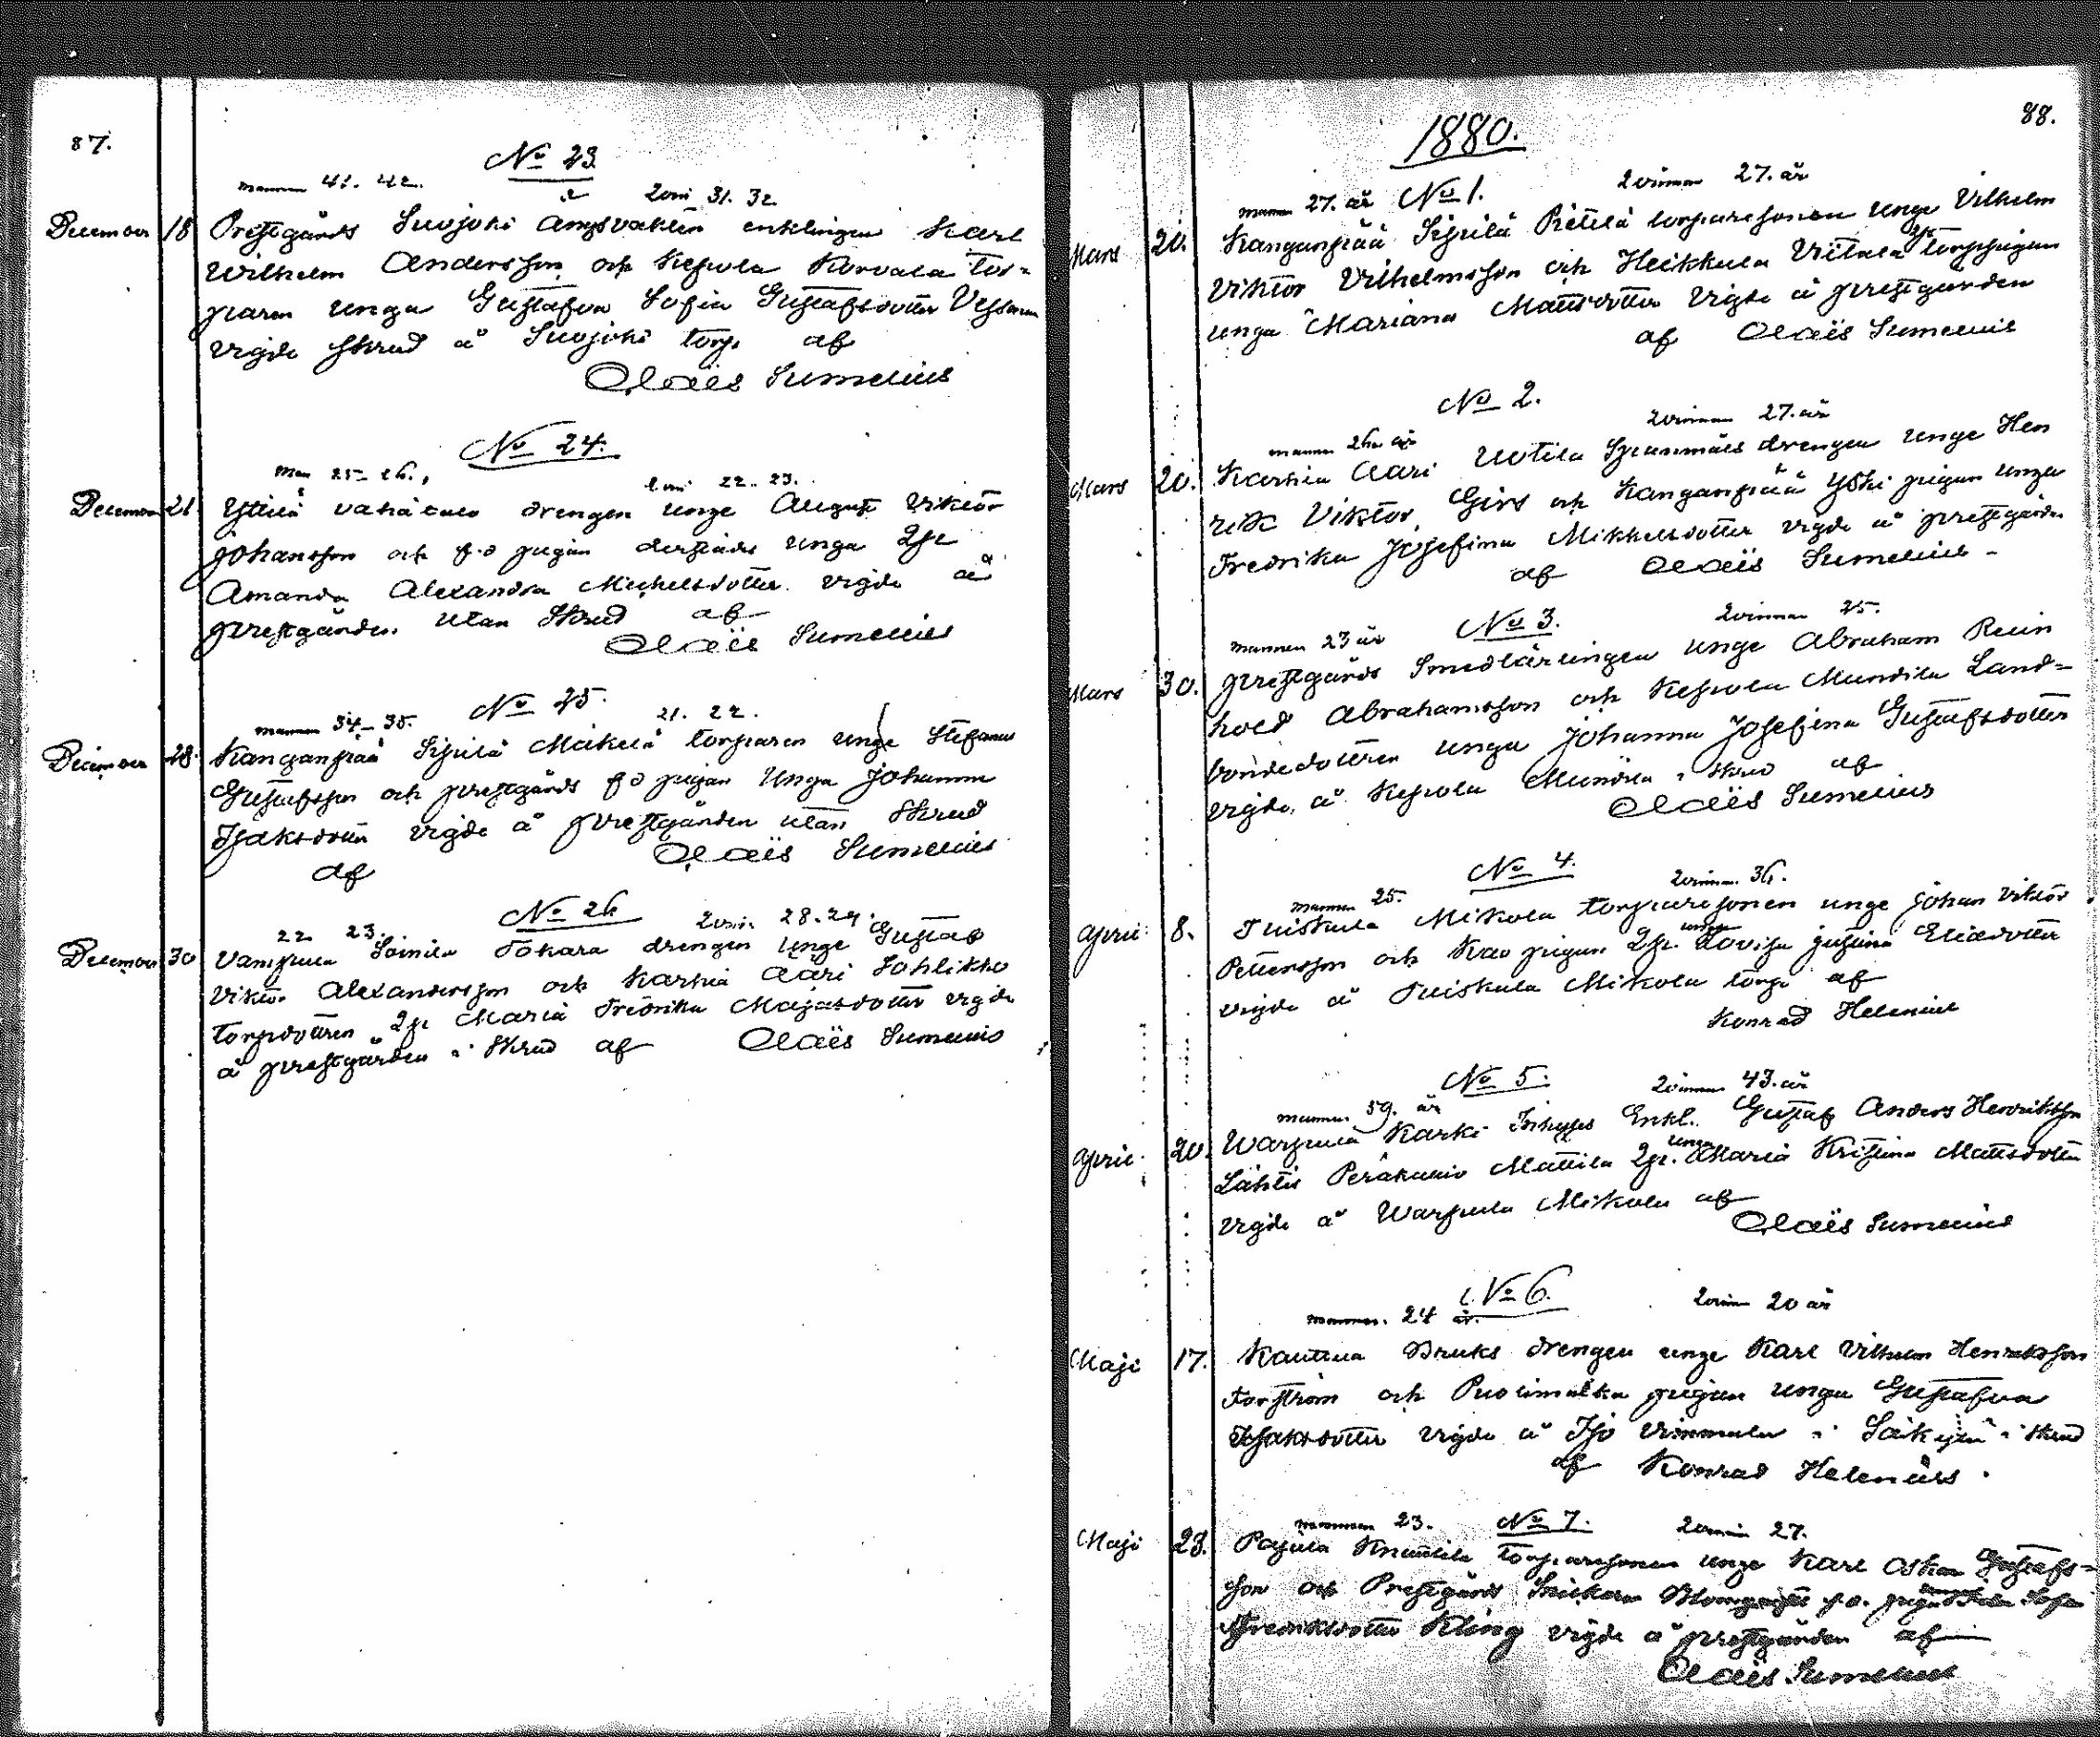 87.
No 23
mannen 41. 42. 31. 32
December 18 Prestgårds Suojoki enklingen Karl
Wilhelm Andersson och Kepola Korvala Tor-
paren unga Gustafva Sofia Gustafsdotter
vigde skrud å Suojoki torp af
Claës Sumelius
No 24.
man 25-26., 22-23.
December 21 drengen unge August Viktor
Johansson och pigan unga
Amanda Alexandra Michelsdotter vigde å
prestgården utan skrud af
Claës Sumelius
No 25.
mannen 34-35. 21. 22.
December 28. Kanganpää Sipilä Mäkelä torparen unge Stefanus
Gustafsson och prestgårds pigan unga Johanna
Isaksdotter vigde å prestgården utan skrud
af Claës Sumelius
No 26
22 23. 28. 29.
December 30 Vampula Soinila Tokara drengen unge Gustaf
Viktor Alexandersson och Karhia Aari
torpdottren Maria Fredrika Majasdotter vigde
å prestgården i skrud af Claës Sumelius
88.
1880.
No 1.
mannen 27. år qvinnan 27. år
Mars 20. Kanganpää Sipilä Pietilä torparesonen unge Vilhelm
Viktor Vilhelmsson och Heikkula torppigan
unga Mariana Mattsdotter vigde å prestgården
af Claës Sumelius
No 2.
mannen 26 år qvinnan 27. år
Mars 20. Karhia Aari Uotila drengen unge Hen
rik Viktor och Kanganpää Yski pigan unga
Fredrika Josefina Mikkelsdotter vigde å prestgården
af Claës Sumelius
No 3.
mannen 23 år qvinnan 25.
Mars 30. Prestgårds Smedlärlingen unge Abraham Rein
hold Abrahamsson och Kepola Mundila Land-
bondedottren unga Johanna Josefina Gustafsdotter
vigde å Kepola Mundila i skrud af
Claës Sumelius
No 4.
mannen 25. qvinnan 36.
April 8. Tuiskula Mikola torparesonen unge Johan Viktor
Pettersson och pigan unga Lovisa Justina Eliasdotter
vigde å Tuiskula Mikola torp af
Konrad Helenius
No 5.
mannen 59. år qvinnan 43. år
April 20. Warpula Karki Enkl. Gustaf Anders Henriksson
Mattila unga Maria Kristina Mattsdotter
vigde å Warpula Mikola af
Claës Sumelius
No 6.
mannen 24 år. qvinnan 20 år
Maji 17. Kauttua Bruks drengen unge Karl Vilhelm Henriksson
Forström och pigan unga Gustafva
Isaksdotter vigde å Iso Vimmala i Säkylä i skrud
af Konrad Helenius.
No 7.
mannen 23. qvinnan 27.
Maji 23. Pajula Knuutila torparesonen unge Karl Oskar Gustafs-
son och Prestgårds Snickare f.d. pigan
Fredriksdotter Kling vigde å prestgården af
Claës Sumelius